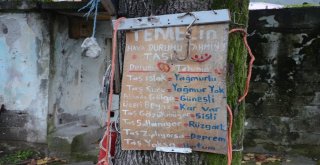 TEMELin
HAVA DURUMU TAHMİN
TAŞI
Durum Tahmin
Taş ıslak = Yağmurlu
Taş Kuru = Yağmur Yok
Gölge = Güneşli
Üzeri Beyaz = Kar var
Taş Gözükmüyor = Sisli
Taş Sallanıyor = Rüzgarlı
Taş Zıplıyorsa = Deprem
Taş